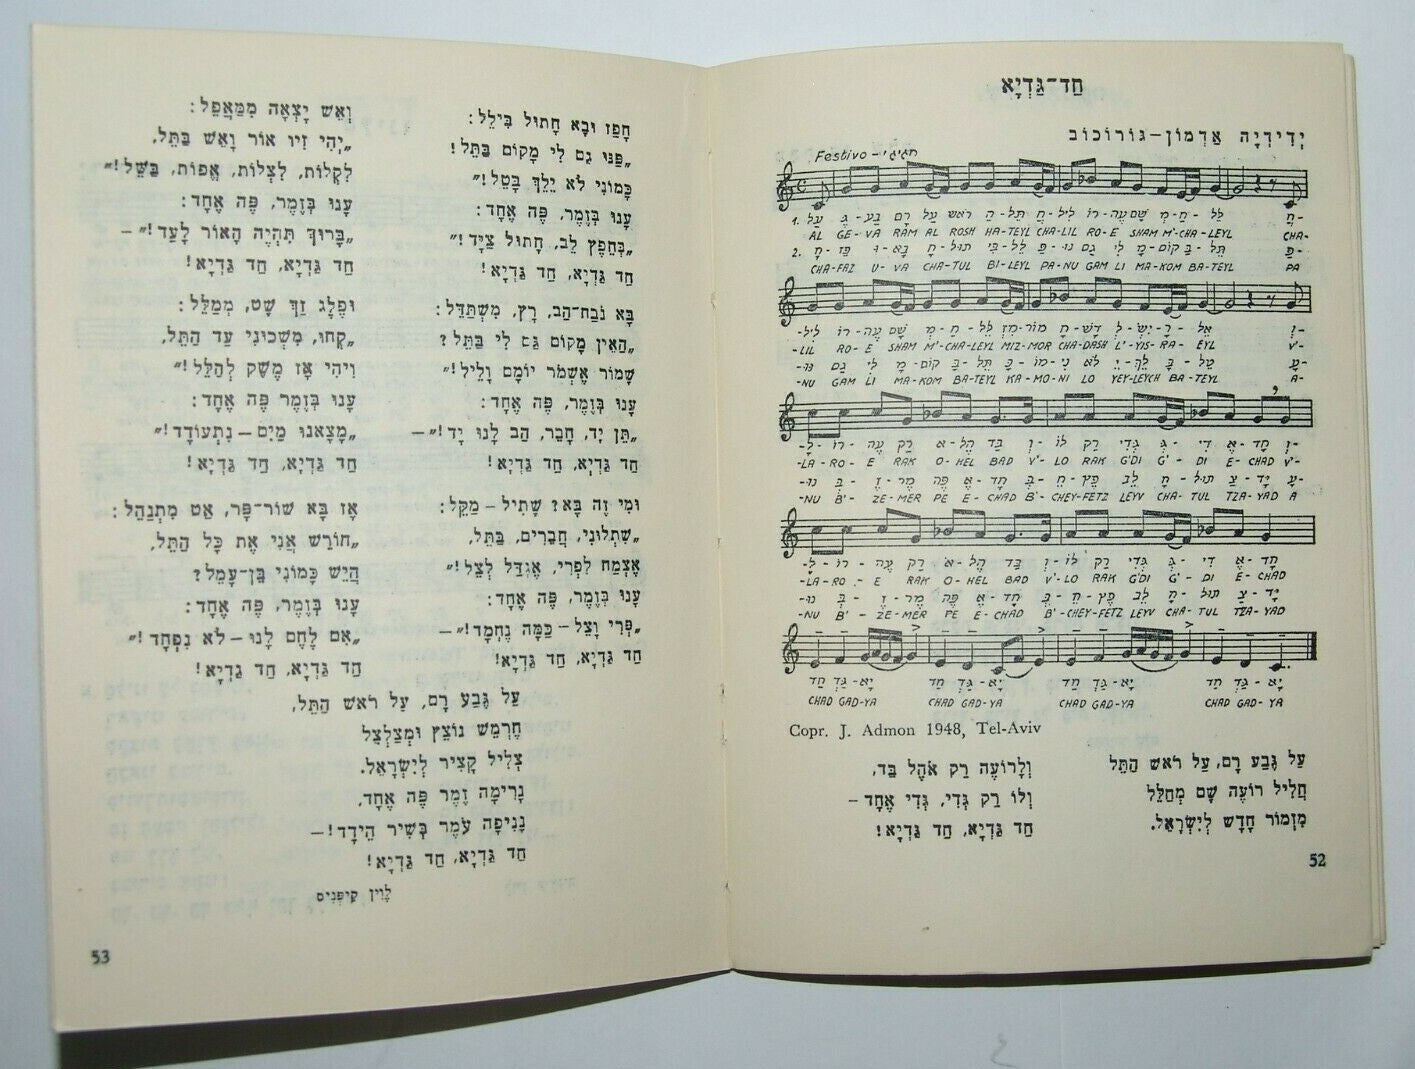 חַד־גַּדְיָא
יְדִידְיָה אַדְמוֹן–גּוֹרוֹכוֹב
Festivo – חגיגי
1. עַל גֶּ-בַע רָם עַל רֹאשׁ הַ-תֵּל חֲ-לִיל רוֹ-עֶה שָׁם מְ-חַ-לֵּל חֲ-
AL GE-VA RAM AL ROSH HA-TEYL CHA-LIL RO-E SHAM M'-CHA-LEYL CHA-
2. חָ-פַז וּ-בָא חָ-תוּל בִּי-לֵל פַּ-נּוּ גַם לִי מָ-קוֹם בַּ-תֵּל פַּ-
CHA-FAZ U-VA CHA-TUL BI-LEYL PA-NU GAM LI MA-KOM BA-TEYL PA
-לִיל רוֹ-עֶה שָׁם מְ-חַ-לֵּל מִזְ-מוֹר חָ-דָשׁ לְ-יִשְׂ-רָ-אֵל וְ-
-LIL RO-E SHAM M'-CHA-LEYL MIZ-MOR CHA-DASH L'-YIS-RA-EYL V'-
-נּוּ גַם לִי מָ-קוֹם בַּ-תֵּל כָּ-מוֹ-נִי לֹא יֵ-לֵךְ בָּ-טֵל עֲ-
-NU GAM LI MA-KOM BA-TEYL KA-MO-NI LO YEY-LEYCH BA-TEYL A-
-לָ-רוֹ-עֶה רַק אֹ-הֶל בַּד וְ-לוֹ רַק גְּדִי גְּ-דִי אֶ-חָד וְ-
-LA-RO-E RAK O-HEL BAD V'-LO RAK G'DI G'-DI E-CHAD V'-
-נוּ בְּ-זֶ-מֶר פֶּה אֶ-חָד בְּ-חֵ-פֶץ לֵב חָ-תוּל צַ-יָּד עֲ-
-NU B'-ZE-MER PE E-CHAD B'-CHEY-FETZ LEYV CHA-TUL TZA-YAD A
-לָ-רוֹ-עֶה רַק אֹ-הֶל בַּד וְ-לוֹ רַק גְּדִי גְּ-דִי אֶ-חָד
-LA-RO-E RAK O-HEL BAD V'-LO RAK G'DI G'-DI E-CHAD
-נוּ בְּ-זֶ-מֶר פֶּה אֶ-חָד בְּ-חֵ-פֶץ לֵב חָ-תוּל צַ-יָּד
-NU B'-ZE-MER PE E-CHAD B'-CHEY-FETZ LEYV CHA-TUL TZA-YAD
חַד גַּדְ-יָא חַד גַּדְ-יָא חַד גַּדְ-יָא חַד גַּדְ-יָא
CHAD GAD-YA CHAD GAD-YA CHAD GAD-YA CHAD GAD-YA
Copr. J. Admon 1948, Tel-Aviv
עַל גֶּבַע רָם, עַל רֹאשׁ הַתֵּל
חֲלִיל רוֹעֶה שָׁם מְחַלֵּל
מִזְמוֹר חָדָשׁ לְיִשְׂרָאֵל.
וְלָרוֹעֶה רַק אֹהֶל בַּד,
וְלוֹ רַק גְּדִי, גְּדִי אֶחָד–
חַד גַּדְיָא, חַד גַּדְיָא!
52
חָפַז וּבָא חָתוּל בִּילֵל:
„פַּנּוּ גַם לִי מָקוֹם בַּתֵּל!
כָּמוֹנִי לֹא יֵלֵךְ בָּטֵל!"
עָנוּ בְּזֶמֶר, פֶּה אֶחָד:
„בְּחֵפֶץ לֵב, חָתוּל צַיָּד!"
חַד גַּדְיָא, חַד גַּדְיָא!
בָּא נֹבַח־הַב, רָץ, מִשְׁתַּדֵּל:
„הַאֵין מָקוֹם גַּם לִי בַּתֵּל?
שָׁמוֹר אֶשְׁמֹר יוֹמָם וָלֵיל!"
עָנוּ בְּזֶמֶר, פֶּה אֶחָד:
„תֵּן יָד, חָבֵר, הַב לָנוּ יָד!"–
חַד גַּדְיָא, חַד גַּדְיָא!
וּמִי זֶה בָּא? שָׁתִיל–מַקֵּל:
„שִׁתְלוּנִי, חֲבֵרִים, בַּתֵּל,
אֶצְמַח לִפְרִי, אֶגְדַּל לְצֵל!"
עָנוּ בְּזֶמֶר, פֶּה אֶחָד:
„פְּרִי וָצֵל–כַּמָּה נֶחְמָד!"–
חַד גַּדְיָא, חַד גַּדְיָא!
וְאֵשׁ יָצְאָה מִמַּאֲפֵל:
„יְהִי זִיו אוֹר וָאֵשׁ בַּתֵּל,
לִקְלוֹת, לִצְלוֹת, אֱפוֹת, בַּשֵּׁל!"
עָנוּ בְּזֶמֶר, פֶּה אֶחָד:
„בָּרוּךְ תִּהְיֶה הָאוֹר לָעַד!"–
חַד גַּדְיָא, חַד גַּדְיָא!
וּפֶלֶג זַךְ שָׁט, מְמַלֵּל:
„קְחוּ, מִשְׁכוּנִי עַד הַתֵּל,
וִיהִי אָז מֶשֶׁק לְהַלֵּל!"
עָנוּ בְּזֶמֶר פֶּה אֶחָד:
„מָצָאנוּ מַיִם–נִתְעוֹדָד!"
חַד גַּדְיָא, חַד גַּדְיָא!
אָז בָּא שׁוֹר־פָּר, אַט מִתְנַהֵל:
„חוֹרֵשׁ אֲנִי אֶת כָּל הַתֵּל,
הֲיֵשׁ כָּמוֹנִי בֶּן–עָמֵל?
עָנוּ בְּזֶמֶר, פֶּה אֶחָד:
„אִם לֶחֶם לָנוּ–לֹא נִפְחָד!"
חַד גַּדְיָא, חַד גַּדְיָא!
עַל גֶּבַע רָם, עַל רֹאשׁ הַתֵּל,
חֶרְמֵשׁ נוֹצֵץ וּמְצַלְצֵל
צְלִיל קָצִיר לְיִשְׂרָאֵל.
נָרִימָה זֶמֶר פֶּה אֶחָד,
נָנִיפָה עֹמֶר בְּשִׁיר הֵידָד!–
חַד גַּדְיָא, חַד גַּדְיָא!
לֵוִין קִיפְּנִיס
53